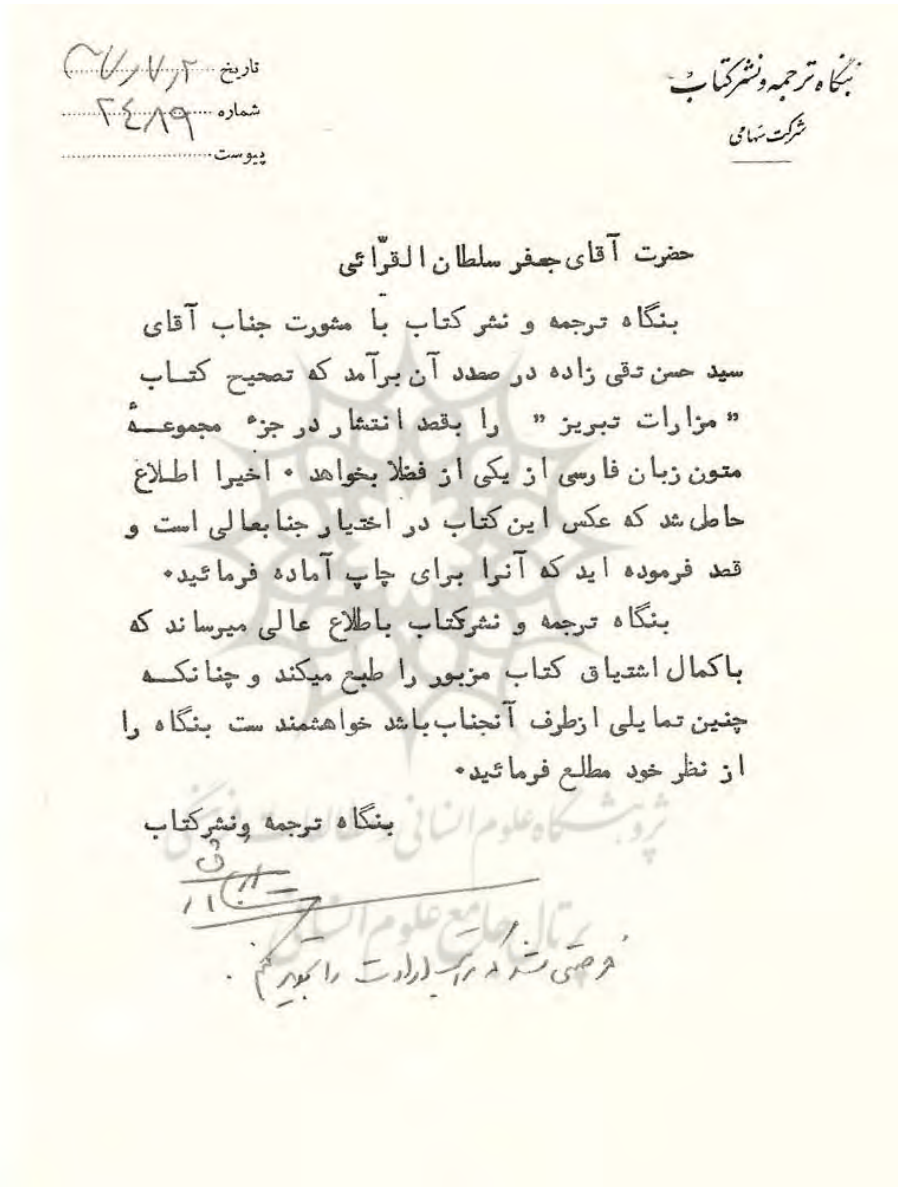 بنگاه ترجمه و نشر کتاب
شرکت سهامی
تاریخ ۳۷/۷/۲
شماره ۲۴۸۹
پیوست
حضرت آقای جعفر سلطان القرّائی
بنگاه ترجمه و نشر کتاب با مشورت جناب آقای
سید حسن تقی زاده در صدد آن برآمد که تصحیح کتاب
" مزارات تبریز " را بقصد انتشار در جزء مجموعهٔ
متون زبان فارسی از یکی از فضلا بخواهد ۰ اخیرا اطلاع
حاصل شد که عکس این کتاب در اختیار جنابعالی است و
قصد فرموده اید که آنرا برای چاپ آماده فرمائید۰
بنگاه ترجمه و نشرکتاب باطلاع عالی میرساند که
باکمال اشتیاق کتاب مزبور را طبع میکند و چنانکه
چنین تمایلی ازطرف آنجناب باشد خواهشمند ست بنگاه را
از نظر خود مطلع فرمائید۰
بنگاه ترجمه ونشرکتاب
فرصتی شد که مراتب ارادت را تجدید کنم.
پژوهشگاه علوم انسانی و مطالعات فرهنگی
پرتال جامع علوم انسانی